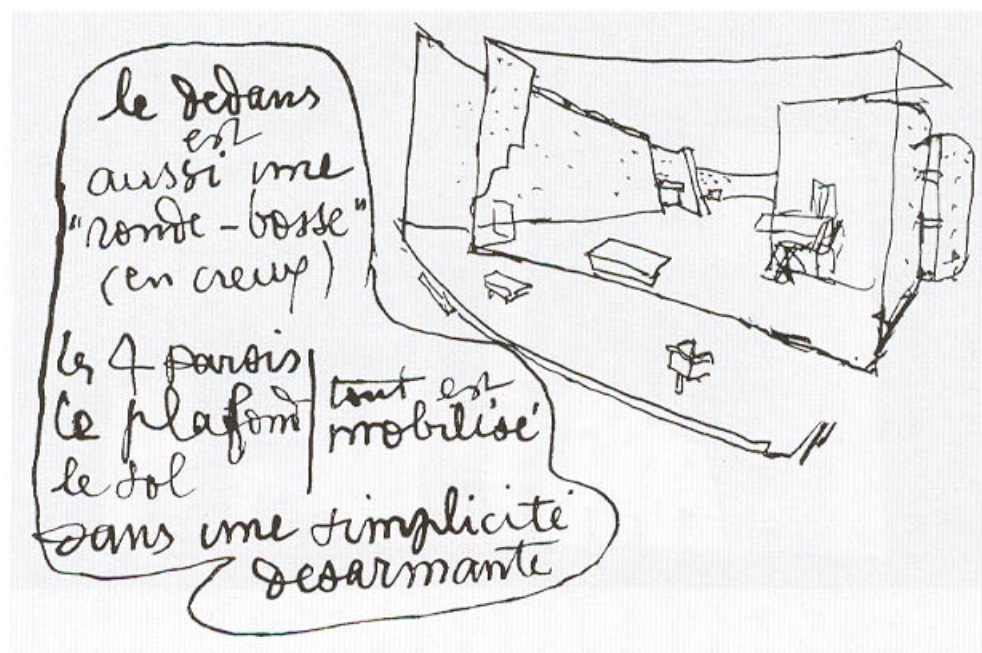 le dedans
est
aussi une
"ronde-bosse"
(en creux)
les 4 parois
le plafond
le sol
tout est
mobilisé
dans une simplicité
desarmante